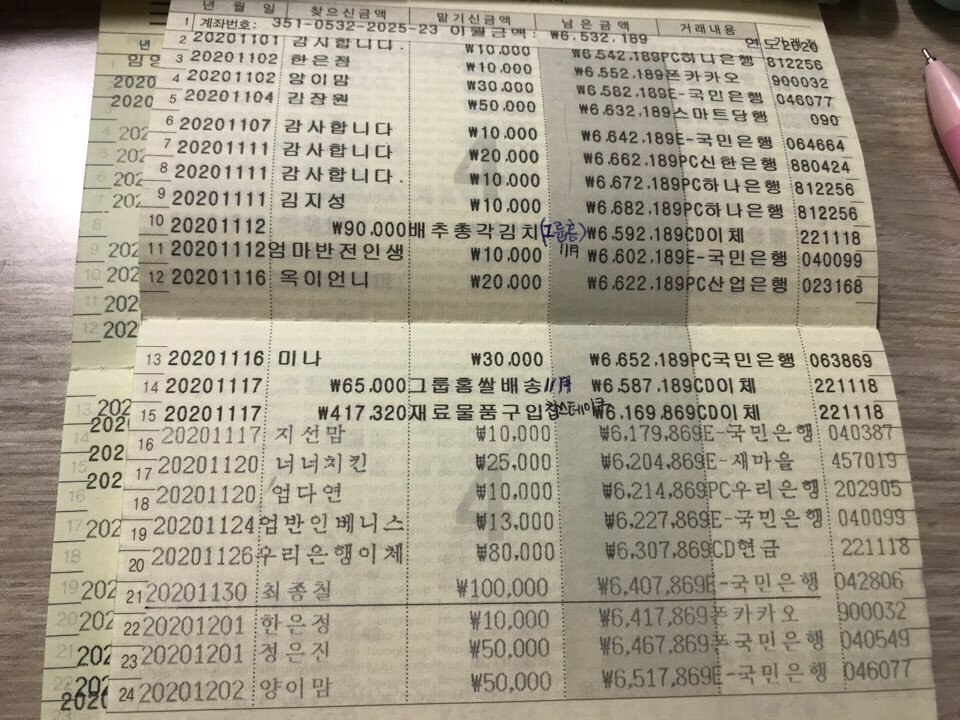 년 월 일 찾으신금액 맡기신금액 남은금액 거래내용
1 계좌번호: 351-0532-2025-23 이월금액: ₩6,532,189 연도:2020
2 20201101 감사합니다. ₩10,000 ₩6,542,189 PC하나은행 812256
3 20201102 한은정 ₩10,000 ₩6,552,189 폰카카오 900032
4 20201102 양이맘 ₩30,000 ₩6,582,189 E-국민은행 046077
5 20201104 김장원 ₩50,000 ₩6,632,189 스마트당행 090
6 20201107 감사합니다 ₩10,000 ₩6,642,189 E-국민은행 064664
7 20201111 감사합니다 ₩20,000 ₩6,662,189 PC신한은행 880424
8 20201111 감사합니다. ₩10,000 ₩6,672,189 PC하나은행 812256
9 20201111 김지성 ₩10,000 ₩6,682,189 PC하나은행 812256
10 20201112 ₩90,000 배추총각김치 (그룹홈) 11月 ₩6,592,189 CD이체 221118
11 20201112 엄마반전인생 ₩10,000 ₩6,602,189 E-국민은행 040099
12 20201116 옥이언니 ₩20,000 ₩6,622,189 PC산업은행 023168
13 20201116 미나 ₩30,000 ₩6,652,189 PC국민은행 063869
14 20201117 ₩65,000 그룹홈쌀배송 11月 ₩6,587,189 CD이체 221118
15 20201117 ₩417,320 재료물품구입 ₩6,169,869 CD이체 221118
16 20201117 지선맘 ₩10,000 ₩6,179,869 E-국민은행 040387
17 20201120 너너치킨 ₩25,000 ₩6,204,869 E-새마을 457019
18 20201120 엄다연 ₩10,000 ₩6,214,869 PC우리은행 202905
19 20201124 엄반인베니스 ₩13,000 ₩6,227,869 E-국민은행 040099
20 20201126 우리은행이체 ₩80,000 ₩6,307,869 CD현금 221118
21 20201130 최종철 ₩100,000 ₩6,407,869 E-국민은행 042806
22 20201201 한은정 ₩10,000 ₩6,417,869 폰카카오 900032
23 20201201 정은진 ₩50,000 ₩6,467,869 폰국민은행 040549
24 20201202 양이맘 ₩50,000 ₩6,517,869 E-국민은행 046077